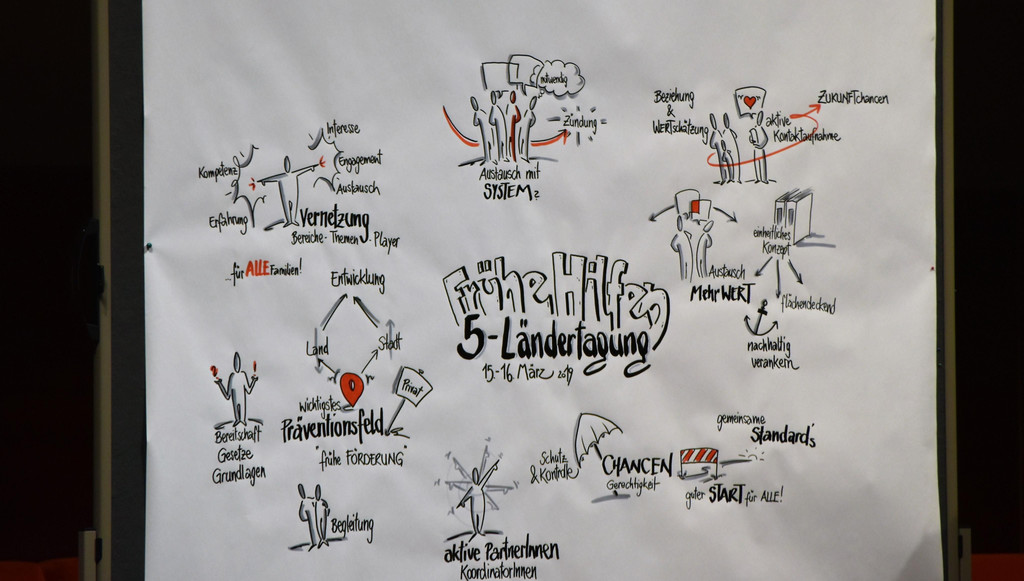 Frühe Hilfen
5-Ländertagung
15.-16. März 2019
notwendig
Zündung
Austausch mit
SYSTEM?
Beziehung
&
WERTschätzung
aktive
Kontaktaufnahme
ZUKUNFTchancen
Austausch
MehrWERT
einheitliches
Konzept
flächendeckend
nachhaltig
verankern
Kompetenz
Erfahrung
Interesse
Engagement
Austausch
Vernetzung
Bereiche - Themen - Player
...für ALLE Familien!
Entwicklung
Land
Stadt
Privat
Wichtigstes
Präventionsfeld
"frühe FÖRDERUNG"
Bereitschaft
Gesetze
Grundlagen
Begleitung
aktive PartnerInnen
KoordinatorInnen
Schutz
& Kontrolle
CHANCEN
Gerechtigkeit
gemeinsame
Standard's
guter START für ALLE!